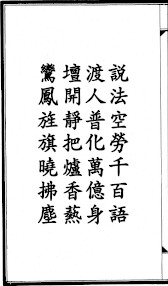 說法空勞千百語
渡人普化萬億身
壇開靜把爐香爇
鸞鳳旌旗曉拂塵